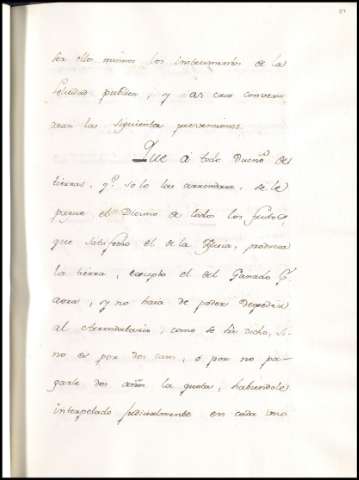 ser ellos mismos los instrumentos de la
felicidad publica, y al caso conven
dran las siguientes prevenciones.
Que á todo Dueño de
tierras, q.e solo las arrendare, se le
pague el Diezmo de todos los frutos,
que satisfecho el de la Iglesia, produzca
la tierra, excepto el del Ganado
y no haia de poder Despedir
al Arrendatario, como se ha dicho, si
no es por dos casos, ó por no pa-
garle dos años la quota, habiendole
interpelado judicialmente en cada uno